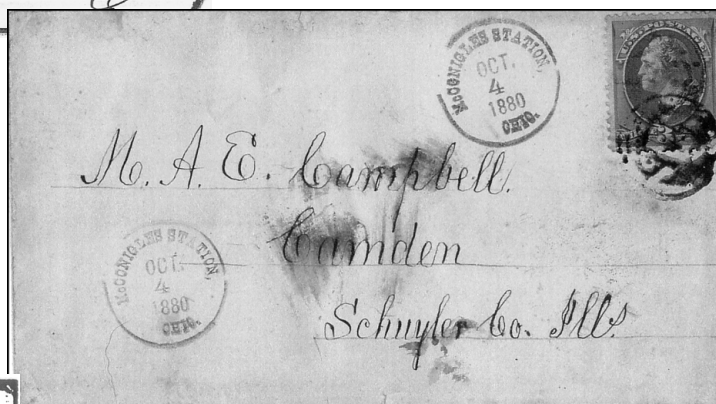 McGONIGLES STATION,
OCT.
4
1880
OHIO.
M. A. E. Campbell.
Camden
Schuyler Co. Ills
McGONIGLES STATION,
OCT.
4
1880
OHIO.